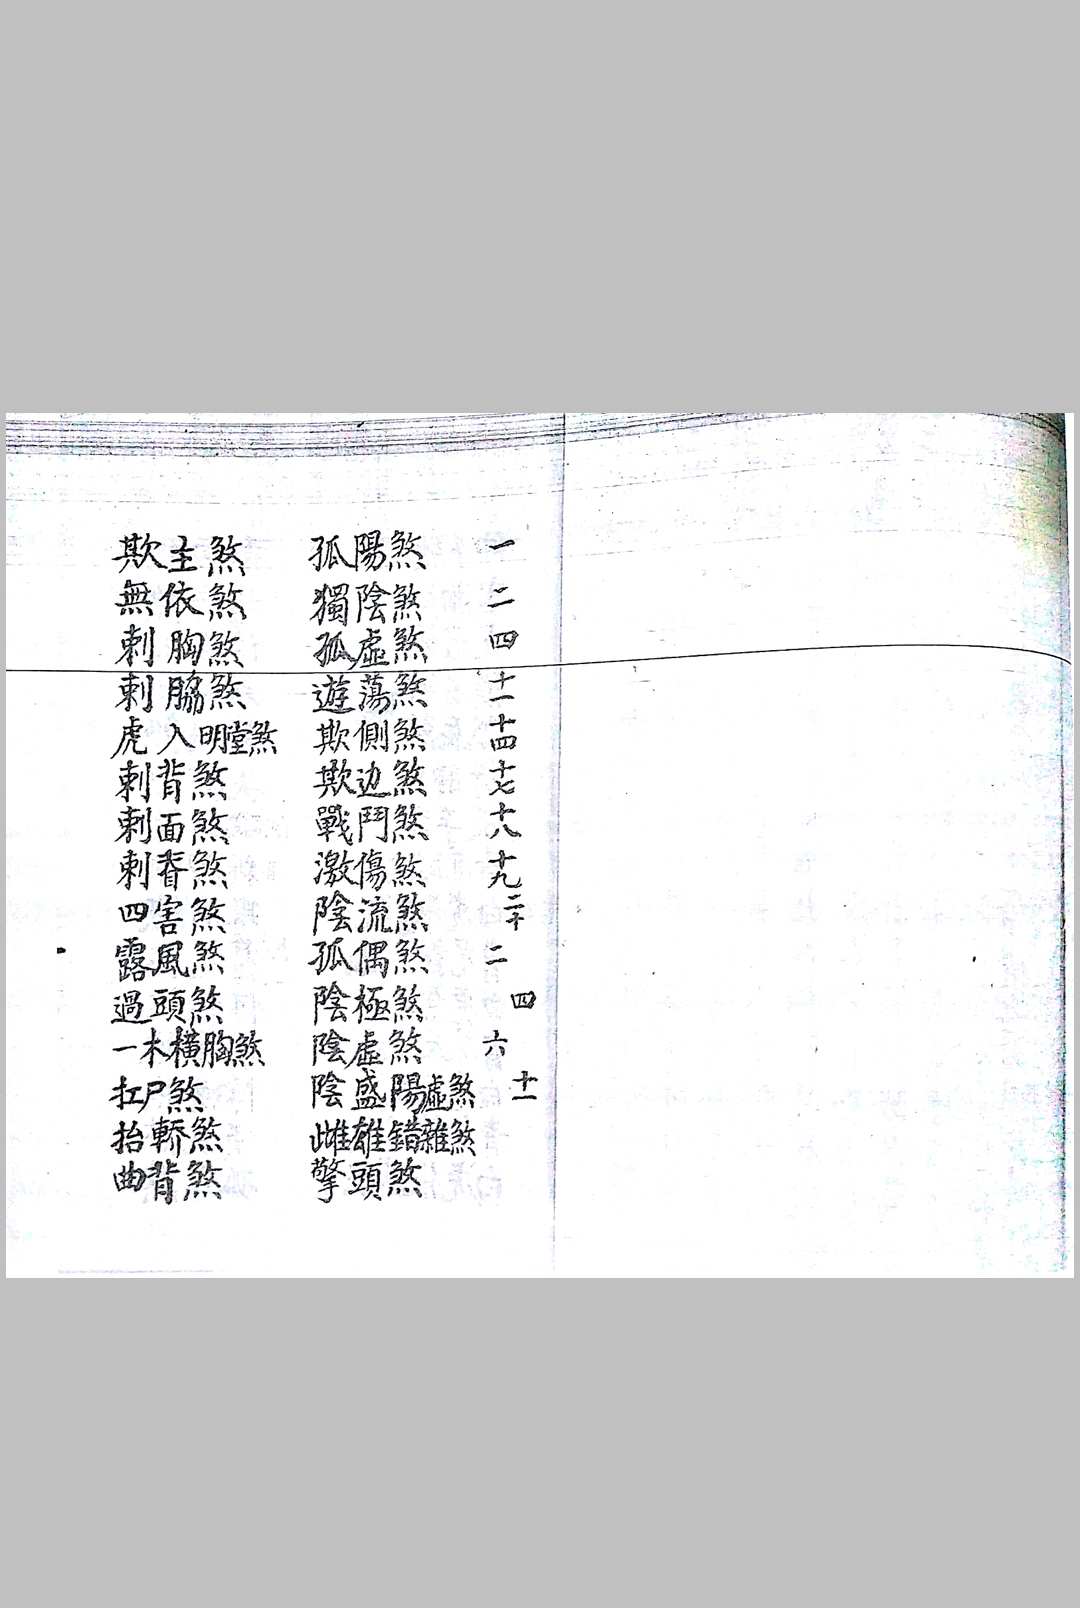 欺主煞 孤陽煞 一
無依煞 獨陰煞 二
刺胸煞 孤虛煞 四
刺脇煞 遊蕩煞 十一
虎入明堂煞 欺側煞 十四
刺背煞 欺边煞 十七
刺面煞 戰鬥煞 十八
刺脊煞 激傷煞 十九
四害煞 陰流煞 二十
露風煞 孤偶煞 二
過頭煞 陰極煞 四
一木橫胸煞 陰虛煞 六
扛尸煞 陰盛陽虛煞 十一
抬轎煞 雌雄錯雜煞
曲背煞 擎頭煞